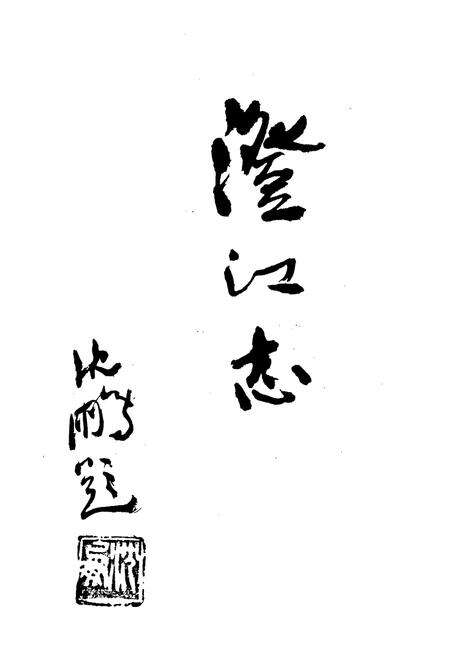 澄江志
沈鹏题